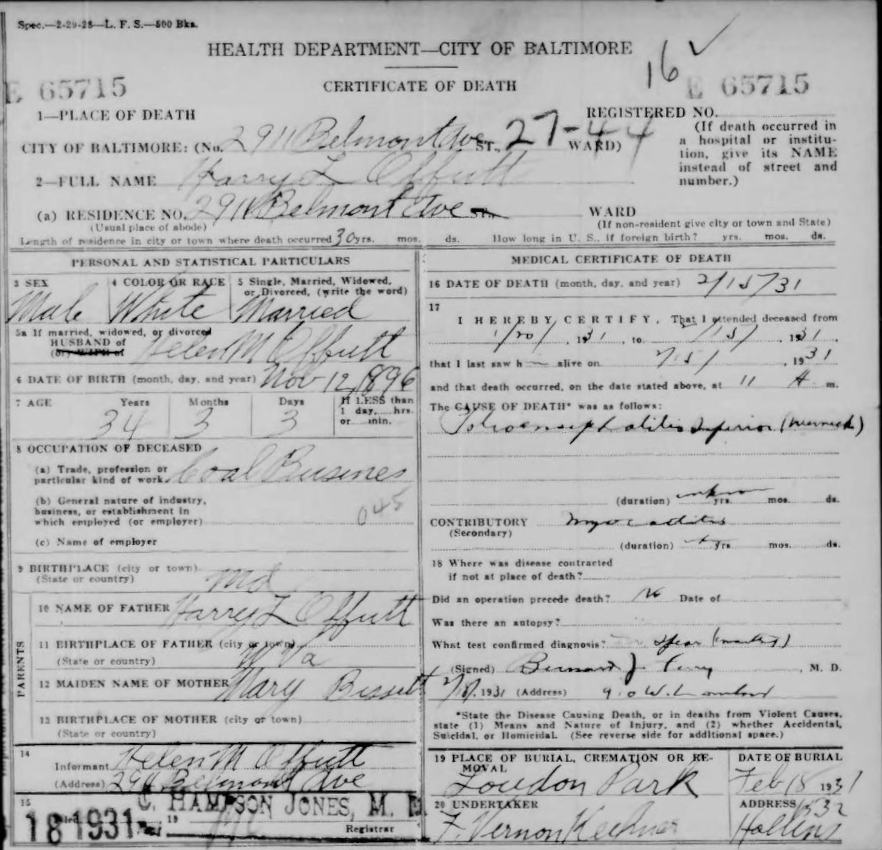 Spec.—2-29-28—L. F. S.—500 Bks.
HEALTH DEPARTMENT—CITY OF BALTIMORE
16 ✓
E 65715
CERTIFICATE OF DEATH
E 65715
1—PLACE OF DEATH
REGISTERED NO.
CITY OF BALTIMORE: (No. 2911 Belmont Ave ST., 27-44 WARD)
(If death occurred in a hospital or institution, give its NAME instead of street and number.)
2—FULL NAME Harry L Offutt
(a) RESIDENCE NO. 2911 Belmont Ave WARD
(Usual place of abode)
(If non-resident give city or town and State)
Length of residence in city or town where death occurred 30 yrs. mos. ds. How long in U. S., if foreign birth? yrs. mos. ds.
PERSONAL AND STATISTICAL PARTICULARS
3 SEX
4 COLOR OR RACE
5 Single, Married, Widowed, or Divorced, (write the word)
Male White Married
5a If married, widowed, or divorced
HUSBAND of Helen M Offutt
(or) WIFE of
6 DATE OF BIRTH (month, day, and year) Nov 12, 1896
7 AGE Years Months Days If LESS than 1 day, hrs. or min.
34 3 3
8 OCCUPATION OF DECEASED
(a) Trade, profession or particular kind of work Coal Business
(b) General nature of industry, business, or establishment in which employed (or employer)
045
(c) Name of employer
9 BIRTHPLACE (city or town)
(State or country) Md
PARENTS
10 NAME OF FATHER Harry L Offutt
11 BIRTHPLACE OF FATHER (city or town)
(State or country) W Va
12 MAIDEN NAME OF MOTHER Mary Bissett
13 BIRTHPLACE OF MOTHER (city or town)
(State or country)
14
Informant Helen M Offutt
(Address) 2911 Belmont Ave
15
18 1931 19
C. HAMPSON JONES, M. D.
Registrar
MEDICAL CERTIFICATE OF DEATH
16 DATE OF DEATH (month, day, and year) 2/15/31
17
I HEREBY CERTIFY, That I attended deceased from
1/20/, 1931, to /15/ 1931
that I last saw h alive on 1931
and that death occurred, on the date stated above, at 11 A m.
The CAUSE OF DEATH* was as follows:
Superior (Wernicke)
(duration) yrs. mos. ds.
CONTRIBUTORY
(Secondary)
(duration) yrs. mos. ds.
18 Where was disease contracted
if not at place of death?
Did an operation precede death? No Date of
Was there an autopsy?
What test confirmed diagnosis?
(Signed) Bernard J. , M. D.
1931 (Address) W. Lombard
*State the Disease Causing Death, or in deaths from Violent Causes, state (1) Means and Nature of Injury, and (2) whether Accidental, Suicidal, or Homicidal. (See reverse side for additional space.)
19 PLACE OF BURIAL, CREMATION OR REMOVAL
DATE OF BURIAL
Loudon Park Feb 18 1931
20 UNDERTAKER
ADDRESS
F. Vernon
Hollins